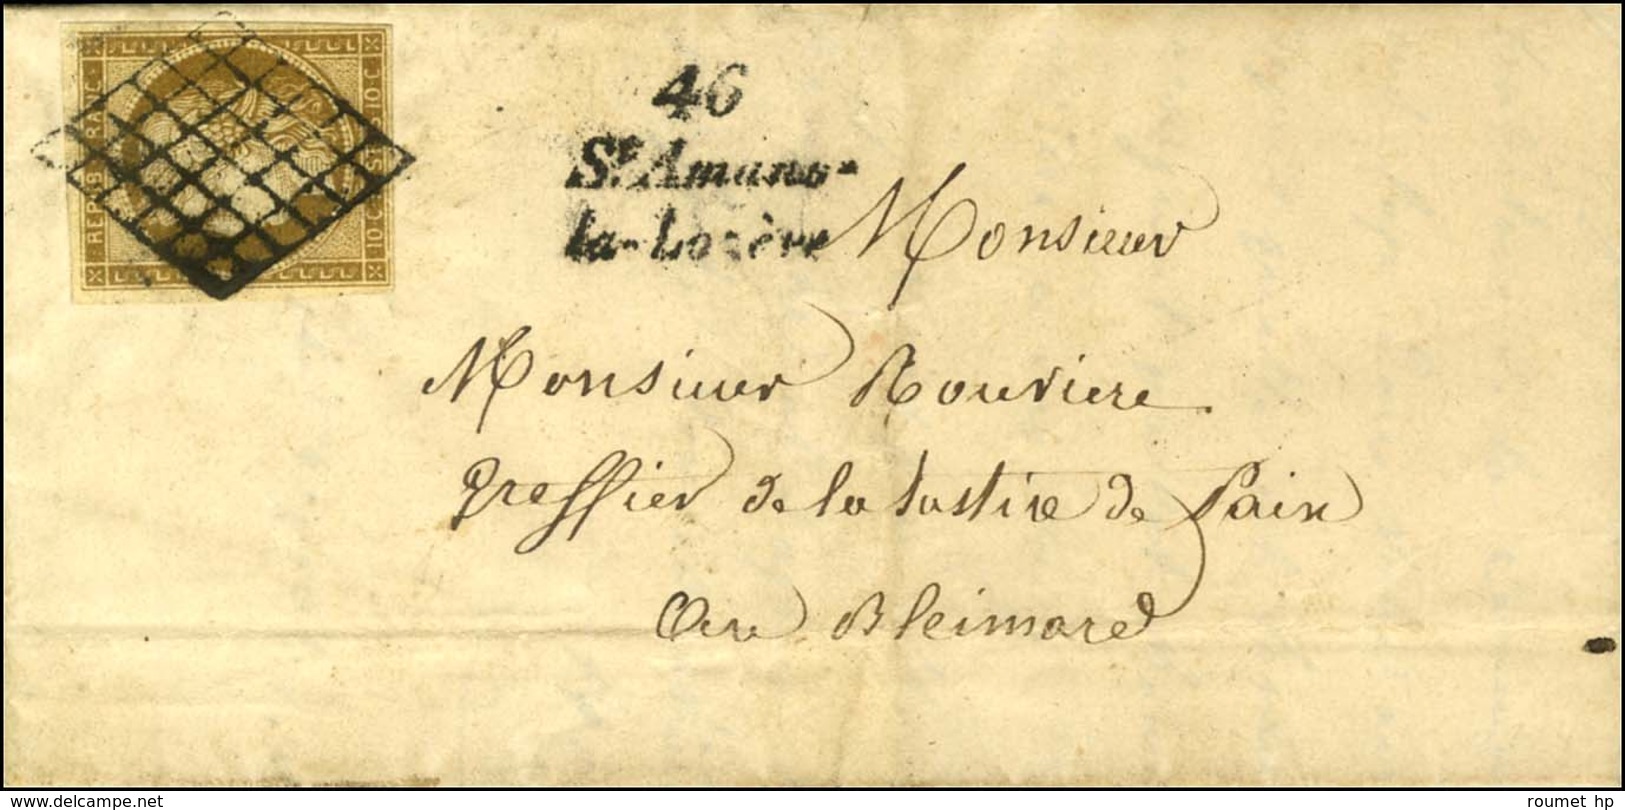 REPUB FRANC
10·C
10·C
46
St. Amans-
la-Lozère
Monsieur
Monsieur Rouviere
greffier de la Justice de Paix
Au Bleimard
www.delcampe.net
roumet hp